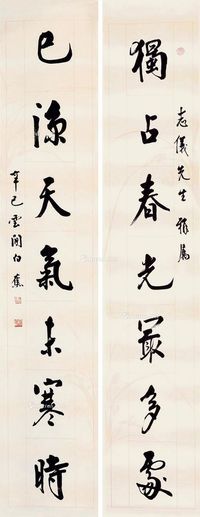 獨占春光最多處
志儀先生雅屬
已涼天氣未寒時
辛巳雲間白蕉